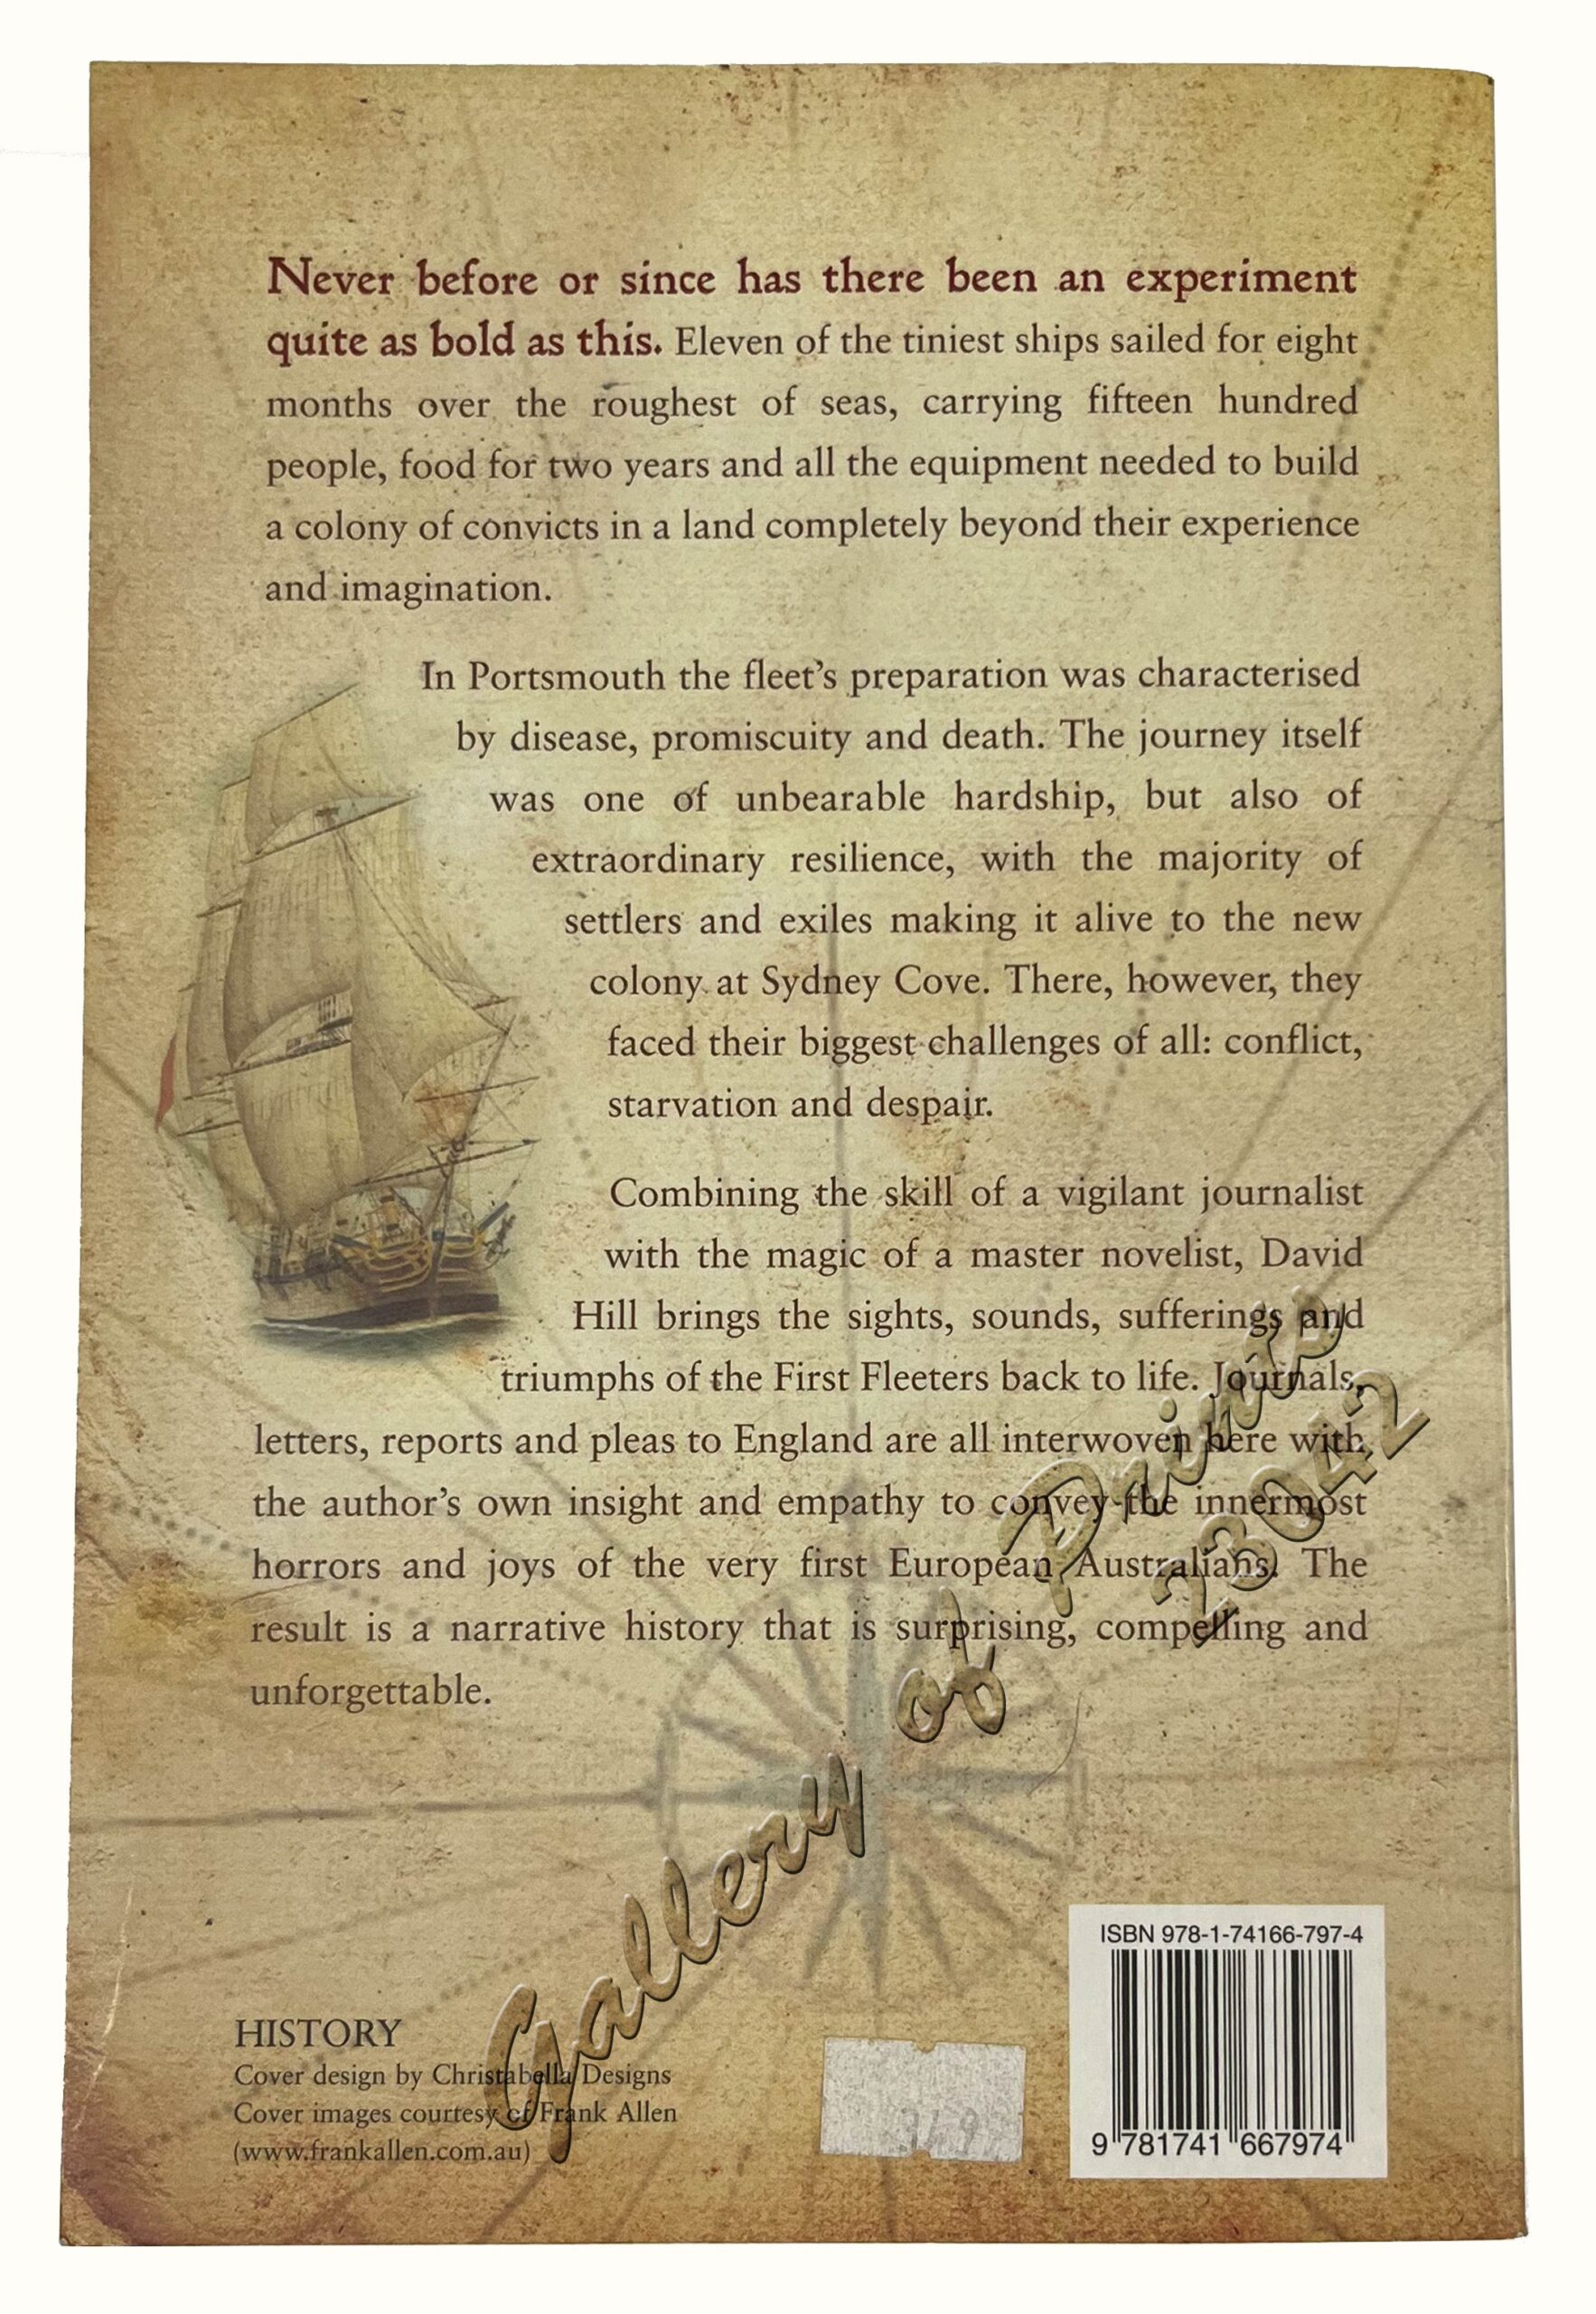 Never before or since has there been an experiment
quite as bold as this. Eleven of the tiniest ships sailed for eight
months over the roughest of seas, carrying fifteen hundred
people, food for two years and all the equipment needed to build
a colony of convicts in a land completely beyond their experience
and imagination.
In Portsmouth the fleet's preparation was characterised
by disease, promiscuity and death. The journey itself
was one of unbearable hardship, but also of
extraordinary resilience, with the majority of
settlers and exiles making it alive to the new
colony at Sydney Cove. There, however, they
faced their biggest challenges of all: conflict,
starvation and despair.
Combining the skill of a vigilant journalist
with the magic of a master novelist, David
Hill brings the sights, sounds, sufferings and
triumphs of the First Fleeters back to life. Journals,
letters, reports and pleas to England are all interwoven here with
the author's own insight and empathy to convey the innermost
horrors and joys of the very first European Australians. The
result is a narrative history that is surprising, compelling and
unforgettable.
Gallery of Prints
23042
HISTORY
Cover design by Christabella Designs
Cover images courtesy of Frank Allen
(www.frankallen.com.au)
ISBN 978-1-74166-797-4
9 781741 667974